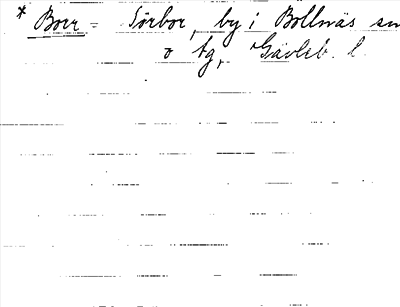 * Borr = Sörbor, by i Bollnäs sn
o tg, Gävleb. l.